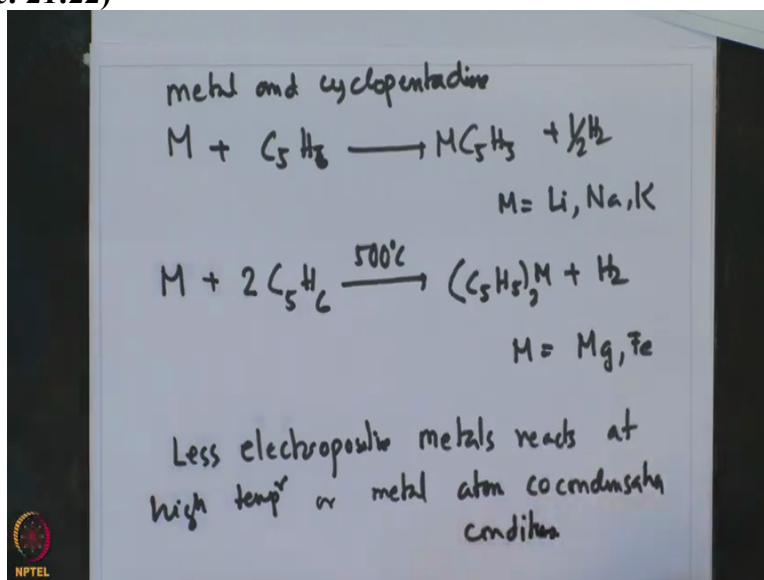 metal and cyclopentadine
M + C5H6 → MC5H5 + 1/2 H2
M = Li, Na, K
M + 2 C5H6 500°C → (C5H5)2M + H2
M = Mg, Fe
Less electropositive metals reacts at
high tempr or metal atom cocondensation
condition
NPTEL